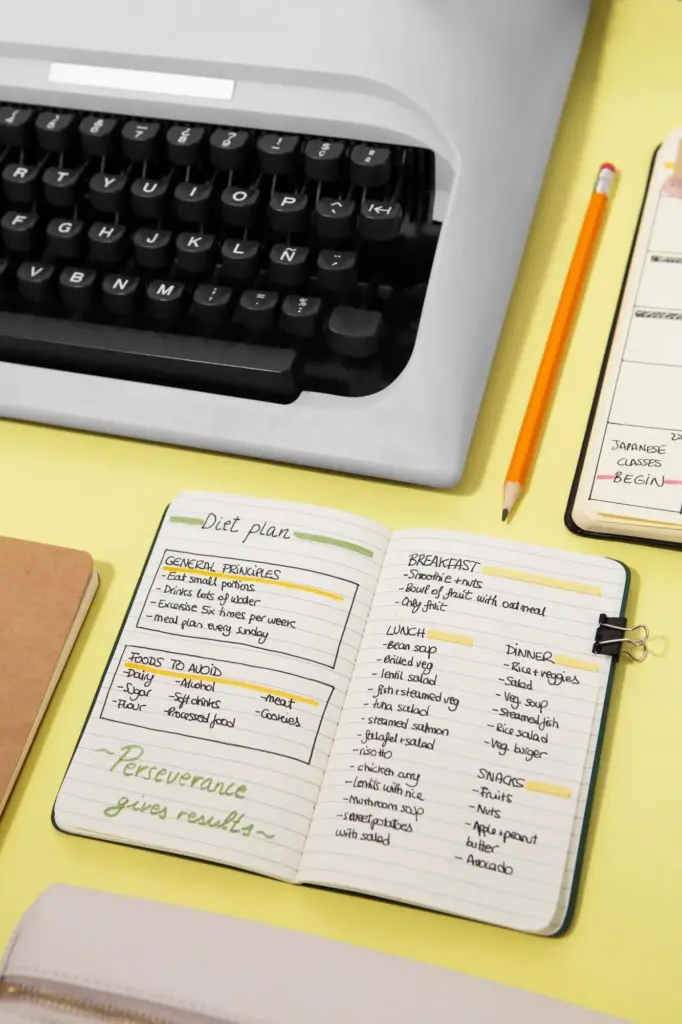 R T Y U I O P
F G H J K L Ñ
V B N M
JAPANESE
CLASSES
BEGIN
Diet plan
GENERAL PRINCIPLES
-Eat small portions
-Drinks lots of water
-Excersise 5x times per week
-meal plan every sunday
FOODS TO AVOID
-Dairy -Alcohol -meat
-Sugar -Soft drinks -Cookies
-Flour -Processed food
~Perseverance
gives results~
BREAKFAST
-Smoothie + nuts
-Bowl of fruit with oatmeal
-Only fruit
LUNCH
-Bean soup
-Grilled veg
-lentil salad
-fish + steamed veg
-tuna salad
-steamed salmon
-falafel + salad
-risotto
-chicken curry
-Lentils with rice
-Mushroom soup
-sweet potatoes
with salad
DINNER
-Rice + veggies
-Salad
-Veg soup
-Steamed fish
-Rice salad
-Veg. burger
SNACKS
-Fruits
-Nuts
-Apple + peanut
butter
-Avocado